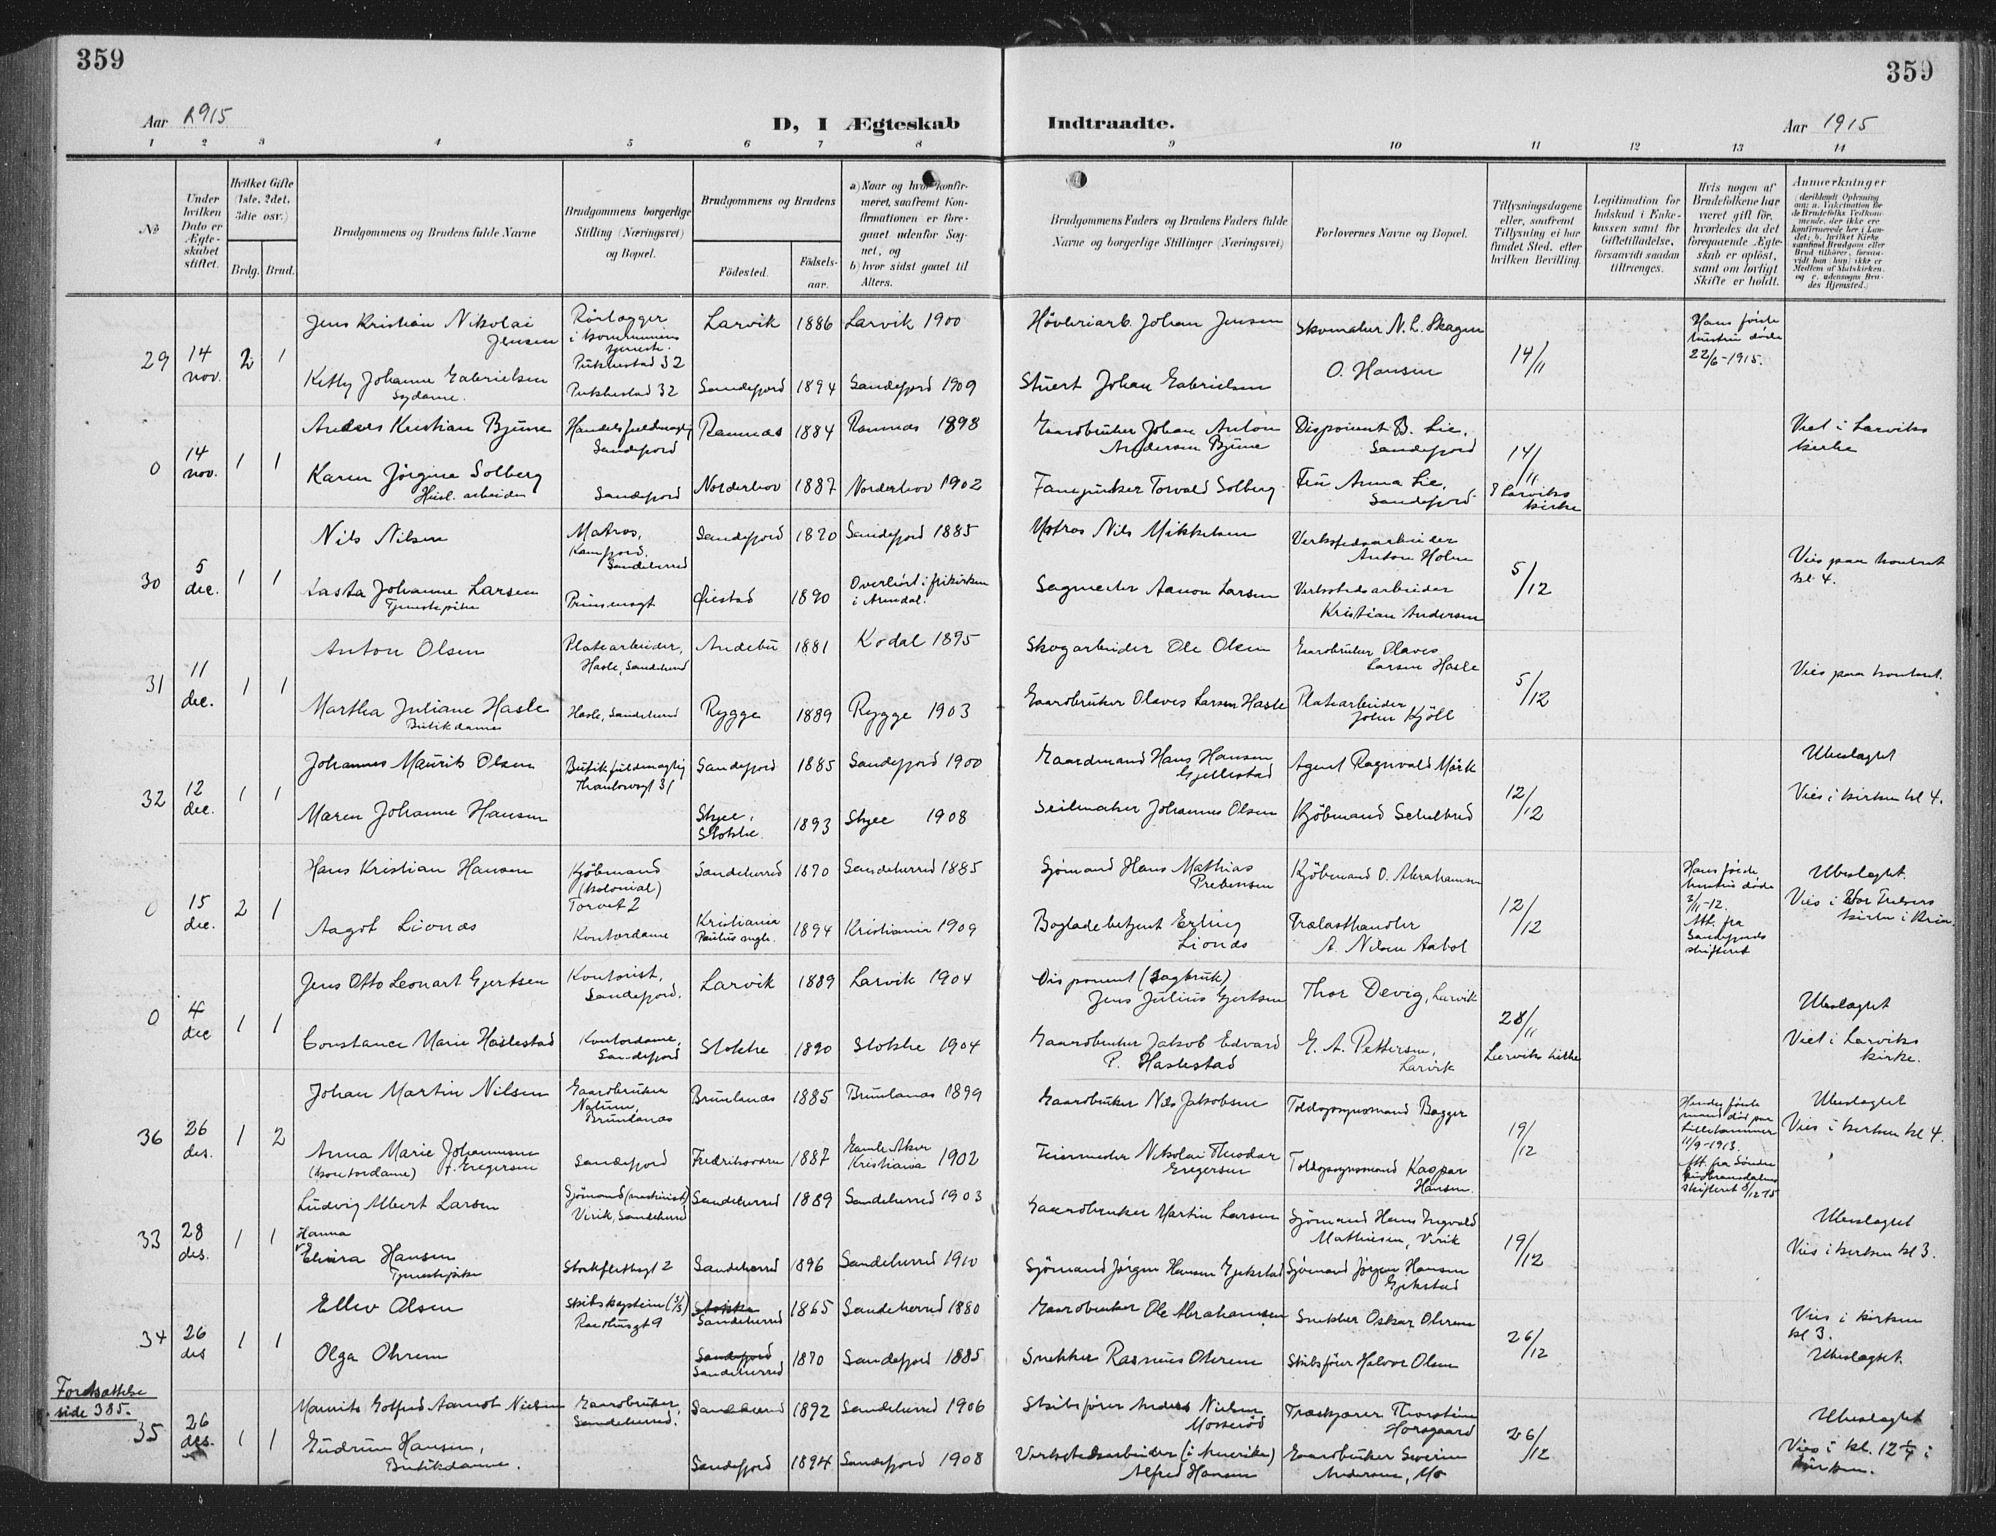 359
359
Aar 1915
D, I Ægteskab Indtraadte.
Aar 1915
1 2 3 4 5 6 7 8 9 10 11 12 13 14
No
Under hvilken Dato er Ægteskabet stiftet.
Hvilket Gifte (1ste, 2det, 3die osv.)
Brdg. Brud.
Brudgommens og Brudens fulde Navne
Brudgommens borgerlige Stilling (Næringsvei) og Bopæl.
Brudgommens og Brudens
Fødested.
Fødselsaar.
a) Naar og hvor konfirmeret, saafremt Konfirmationen er foregaaet udenfor Sognet, og
b) hvor sidst gaaet til Alters.
Brudgommens Faders og Brudens Faders fulde Navne og borgerlige Stillinger (Næringsvei)
Forlovernes Navne og Bopæl.
Tillysningsdagene eller, saafremt Tillysning ei har fundet Sted, efter hvilken Bevilling.
Legitimation for Indskud i Enkekassen samt for Giftetilladelse, forsaavidt saadan tiltrænges.
Hvis nogen af Brudefolkene har været gift før, hvorledes da det foregaaende Ægteskab er opløst, samt om lovligt Skifte er holdt.
Anmerkninger
29 14 nov. 2 1
Jens Kristian Nikolai Jensen
Rørlægger i kommunens tjeneste. Pukkestad 32
Larvik 1886 Larvik 1900
Høvleriarb. Johan Jensen
Skomaker N. L. Skagen
14/11
Hans første hustru døde 22/6-1915.
Ketty Johanne Gabrielsen
Sydame.
Pukkestad 32
Sandefjord 1894 Sandefjord 1909
Stuert Johan Gabrielsen
O. Hansen
0 14 nov. 1 1
Anders Kristian Bjune
Handelsfuldmægtig Sandefjord
Ramnæs 1884 Ramnæs 1898
Gaardbruker Johan Anton Andersen Bjune
Disponent B. Lie, Sandefjord
14/11 I Larviks kirke
Viet i Larviks kirke
Karen Jørgine Solberg
Husl. arbeider
Sandefjord
Norderhov 1887 Norderhov 1902
Fanejunker Torvald Solberg
Fru Anna Lie, Sandefjord
30 5 dec. 1 1
Nils Nilsen
Matros, Kamfjord. Sandeherred
Sandefjord 1870 Sandefjord 1885
Matros Nils Mikkelsen
Verkstedsarbeider Anton Holm
5/12
Vies paa kontoret kl 4.
Lasta Johanne Larsen
Tjenestepike
Prinsensgt
Øiestad 1890
Overhørt i frikirken i Arendal.
Sagmester Aanon Larsen
Verkstedsarbeider Kristian Andersen
31 11 dec. 1 1
Anton Olsen
Platearbeider, Hasle, Sandeherred
Andebu 1881 Kodal 1895
Skogarbeider Ole Olsen
Gaardbruker Olaves Larsen Hasle
5/12
Vies paa kontoret.
Martha Juliane Hasle
Butikdame
Hasle, Sandeherred
Rygge 1889 Rygge 1903
Gaardbruker Olaves Larsen Hasle
Platearbeider John Kjøll
32 12 dec. 1 1
Johannes Maurits Olsen
Butikfuldmægtig
Sandefjord 1885 Sandefjord 1900
Gaardmand Hans Hansen Gjellestad
Agent Ragnvald Mørk
12/12
Ubeslægtet
Vies i kirken kl 4.
Maren Johanne Hansen
Skjee, Stokke. 1893 Skjee 1908
Seilmaker Johannes Olsen
Kjøbmand Schelbred
0 15 dec. 2 1
Hans Kristian Hansen
Kjøbmand (kolonial) Torvet 2
Sandeherred 1870 Sandeherred 1885
Sjømand Hans Mathias Prebensen
Kjøbmand O. Abrahamsen
12/12
Hans første hustru døde 3/11-12. Att. fra Sandefjords skifteret
Ubeslægtet.
Vies i Vor Frelsers kirke i Kria.
Aagot Lionæs
Kontordame
Kristiania Paulus mgh. 1894 Kristiania 1909
Bogladebetjent Erling Lionæs
Trælasthandler A. Nilsen Aabol
0 4 dec 1 1
Jens Otto Leonart Gjertsen
Kontorist, Sandefjord.
Larvik 1889 Larvik 1904
Disponent (Sagbruk) Jens Julius Gjertsen
Thor Devig, Larvik
28/11 Larviks kirke
Ubeslægtet
Viet i Larviks kirke.
Constance Marie Haslestad
Kontordame, Sandefjord
Stokke 1890 Stokke 1904
Gaardbruker Jakob Edvard P. Haslestad
E. A. Pettersen, Larvik
36 26 des. 1 2
Johan Martin Nilsen
Gaardbruker Nalum, Brunlanæs
Brunlanæs 1885 Brunlanæs 1899
Gaardbruker Nils Jakobsen
Toldopsynsmand Bagger
19/12
Hendes første mand død paa Lillehammer 11/9-1913. Att. fra Søndre Gudbrandsdalens skifteret 8/12 15
Ubeslægtet
Vies i kirken kl 4.
Anna Marie Johannesen
(kontordame) f. Gregersen
Sandefjord
Fredriksværn 1887 Gamle Aker Kristiania 1902
Feiermester Nikolai Theodor Gregersen
Toldopsynsmand Kaspar Hansen.
33 28 des. 1 1
Ludvig Albert Larsen
Sjømand (maskinist) Virik, Sandeherred
Sandeherred 1889 Sandeherred 1903
Gaardbruker Martin Larsen
Sjømand Hans Ingvald Mathiesen, Virik
19/12
Ubeslægtet
Vies i kirken kl 3.
Hanna
Elvira Hansen
Tjenestepike
Storkfletsgt 2
Sandeherred 1896 Sandeherred 1910
Sjømand Jørgen Hansen Gjekstad
Sjømand Jørgen Hansen Gjekstad
34 26 des 1 1
Ellev Olsen
Skibskaptein (S/S) Raadhusgt 9
Stokke Sandeherred 1865 Sandeherred 1880
Gaardbruker Ole Abrahamsen
Snekker Oskar Ohrem
26/12
Vies i kirken kl 3.
Ubeslægtet.
Olga Ohrem
Sandefjord Sandeherred 1870 Sandefjord 1885
Snekker Rasmus Ohrem
Skibsfører Halvor Olsen
Fortsættelse side 385.
35 26 des. 1 1
Maurits Gotfred Aamot Nielsen
Gaardbruker, Sandeherred.
Sandeherred 1892 Sandeherred 1906
Skibsfører Anders Nielsen Mosserød
Træskjærer Thorstein Horsgaard
26/12
Ubeslægtet
Vies i kl. 12 1/4 i kirken.
Gudrun Hansen,
Butikdame.
Sandefjord 1894 Sandefjord 1908
Verkstedsarbeider (i Amerika) Alfred Hansen
Gaardbruker Severin Andersen, Mo